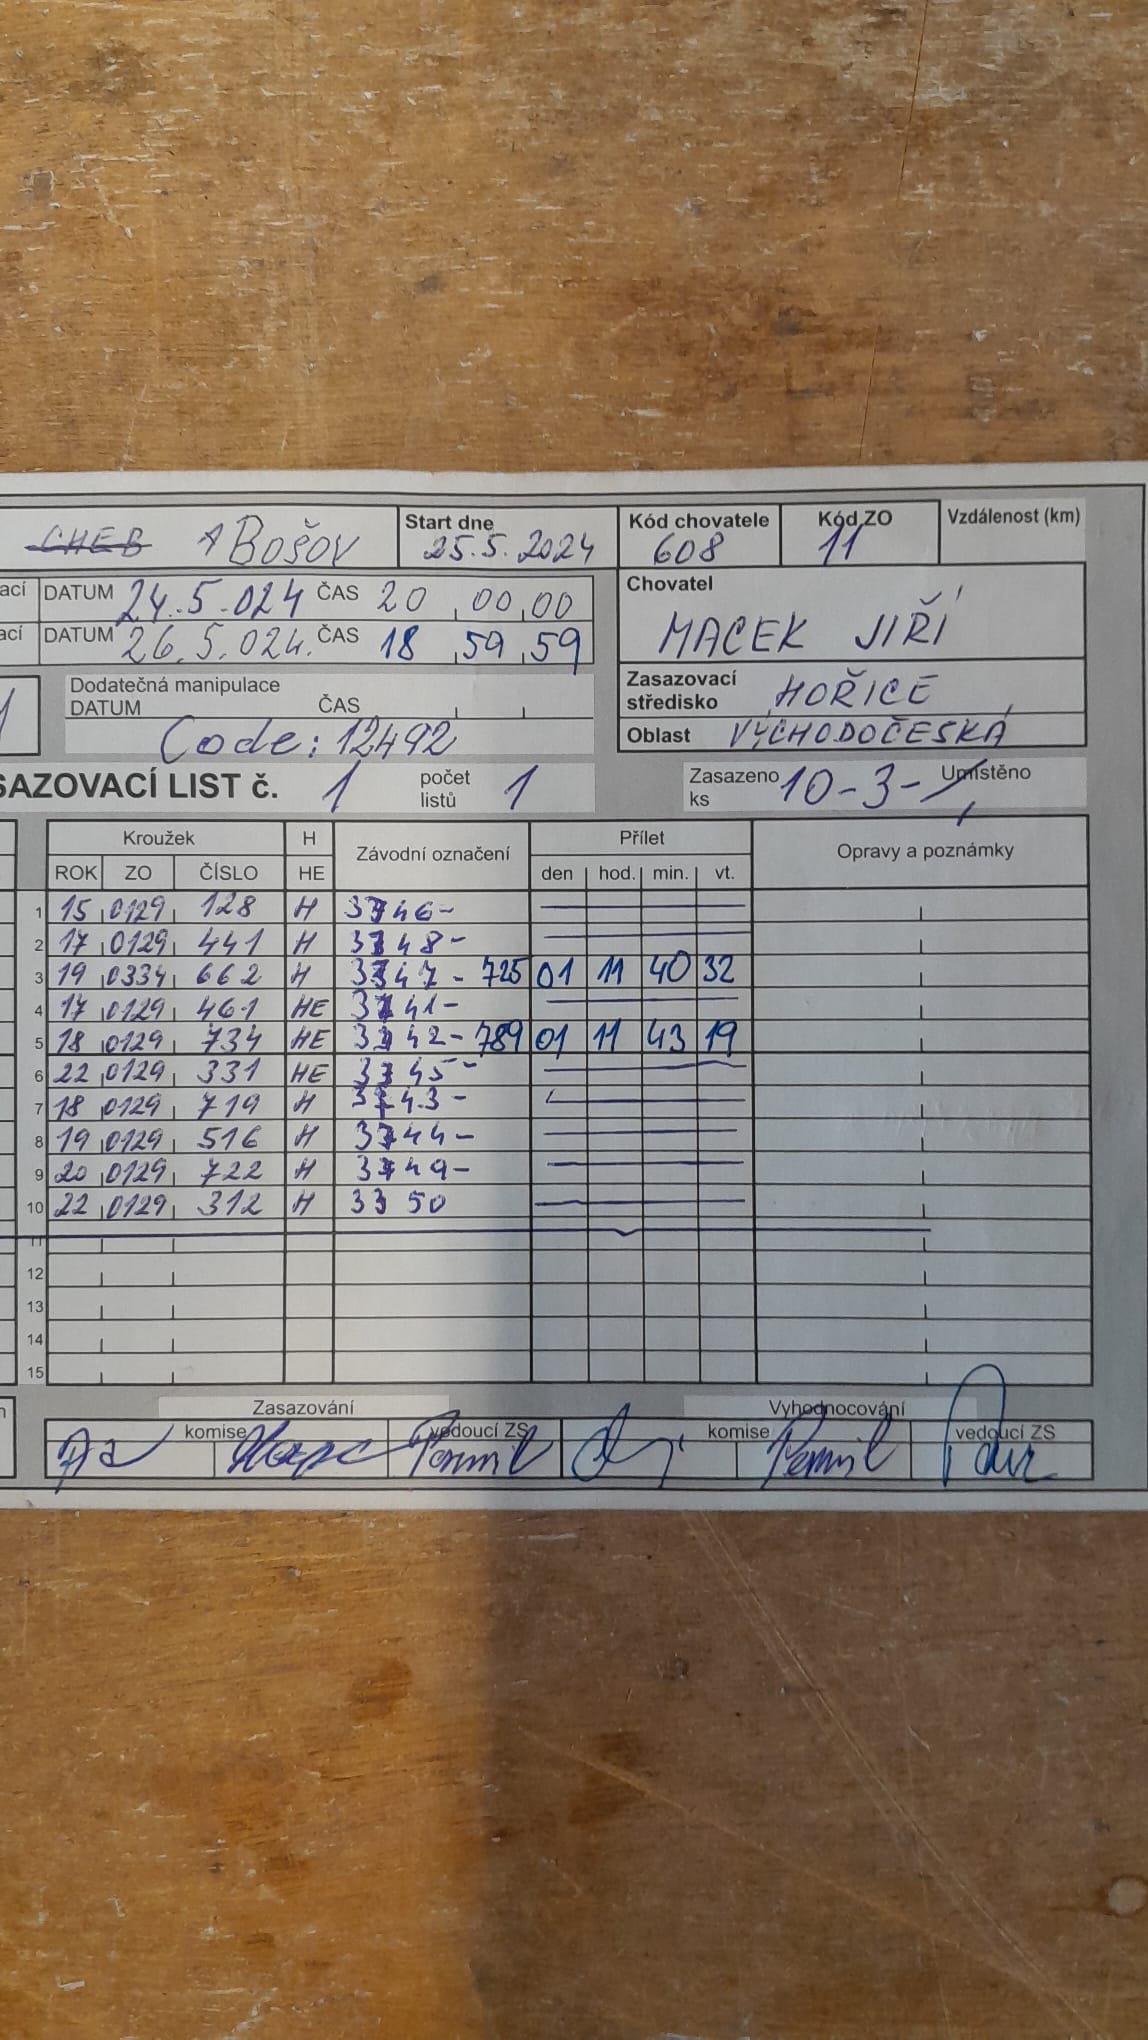 CHEB A BOŠOV Start dne 25.5.2024 Kód chovatele 608 Kód ZO 11 Vzdálenost (km)
ací DATUM 24.5.024 ČAS 20 00 00
ací DATUM 26.5.024. ČAS 18 59 59
Chovatel
MACEK JIŘÍ
Zasazovací středisko HOŘICE
Oblast VÝCHODOČESKÁ
Dodatečná manipulace
DATUM ČAS
Code: 12492
SAZOVACÍ LIST č. 1 počet listů 1 Zasazeno ks 10-3- Umístěno
Kroužek H Závodní označení Přílet Opravy a poznámky
ROK ZO ČÍSLO HE den hod. min. vt.
1 15 0129 128 H 3346-
2 17 0129 441 H 3348-
3 19 0334 662 H 3347 - 725 01 11 40 32
4 17 0129 461 HE 3341-
5 18 0129 734 HE 3342- 789 01 11 43 19
6 22 0129 331 HE 3345-
7 18 0129 719 H 3343-
8 19 0129 516 H 3344-
9 20 0129 722 H 3349-
10 22 0129 312 H 3350
11
12
13
14
15
Zasazování Vyhodnocování
komise vedoucí ZS komise vedoucí ZS